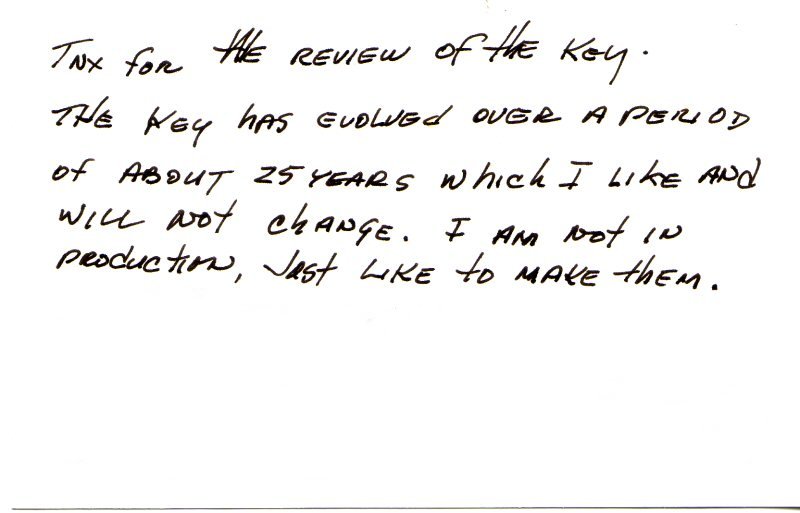 TNX for the REVIEW of the KEY.
THE KEY HAS EVOLVED OVER A PERIOD
of ABOUT 25 YEARS which I LIKE AND
WILL NOT CHANGE. I AM NOT IN
PRODUCTION, JUST LIKE to MAKE them.